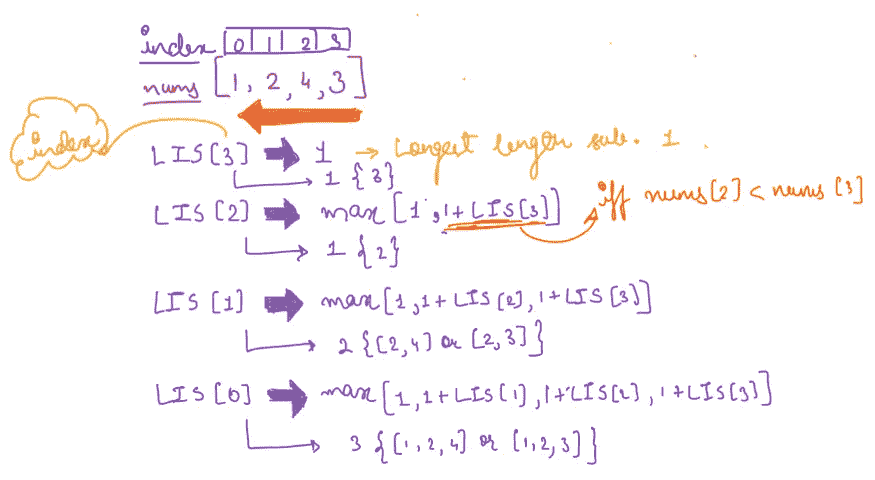 index 0 1 2 3
nums [1, 2, 4, 3]
index
LIS[3] → 1 → Longest length sub. 1.
1 {3}
LIS[2] → max[1, 1+LIS[3]] iff nums[2] < nums[3]
1 {2}
LIS[1] → max[1, 1+LIS[2], 1+LIS[3]]
2 {[2,4] or [2,3]}
LIS[0] → max[1, 1+LIS[1], 1+LIS[2], 1+LIS[3]]
3 {[1,2,4] or [1,2,3]}